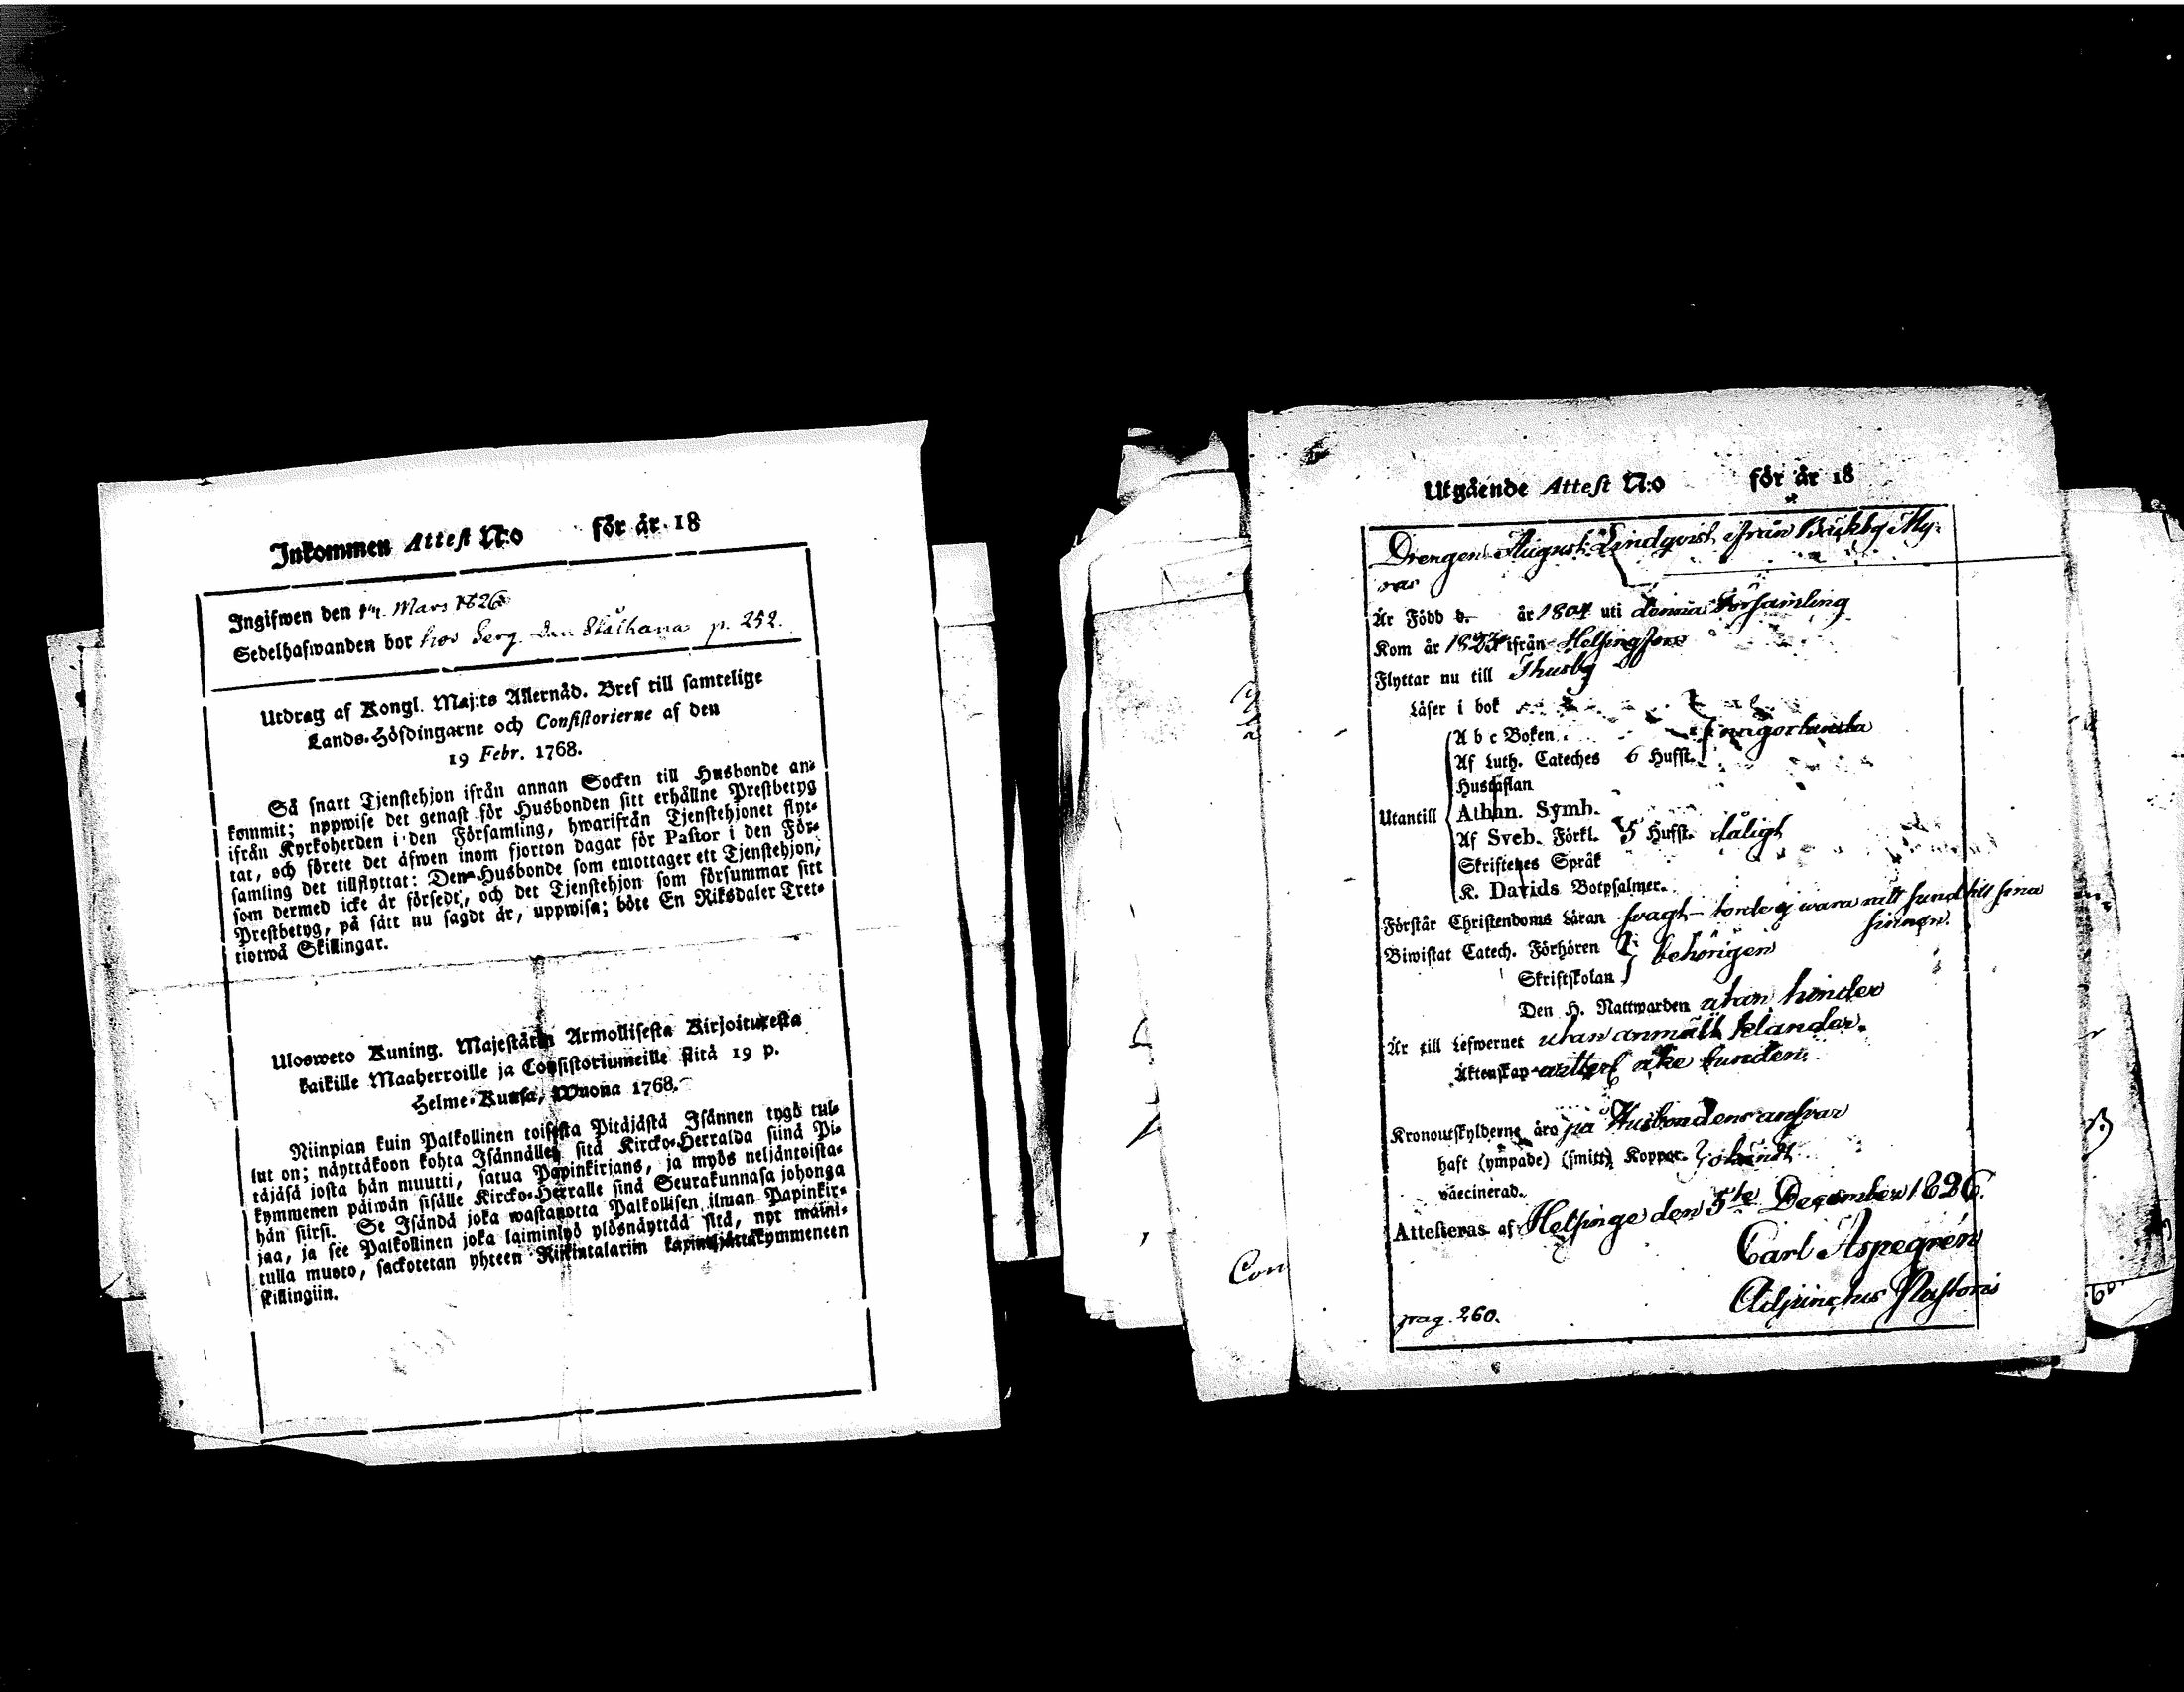 Inkommen Attest N:o för år 18
Ingifwen den Mars 1826
Sedelhafwanden bor hos Serg. Stålhana p. 252.
Utdrag af Kongl. Maj:ts Allernåd. Bref till samtelige
Lands-Höfdingarne och Consistorierne af den
19 Febr. 1768.
Så snart Tjenstehjon ifrån annan Socken till Husbonde an-
kommit; uppwise det genast för Husbonden sitt erhållne Prestbetyg
ifrån Kyrkoherden i den Församling, hwarifrån Tjenstehjonet flyt-
tat, och förete det äfwen inom fjorton dagar för Pastor i den För-
samling det tillflyttat: Den Husbonde som emottager ett Tjenstehjon,
som dermed icke är försedt, och det Tjenstehjon som försummar sitt
Prestbetyg, på sätt nu sagdt är, uppwisa; böte En Riksdaler Tret-
tiotwå Skillingar.
Ulosweto Kuning. Majestätin Armollisesta Kirjoituxesta
kaikille Maaherroille ja Consistoriumeille siitä 19 p.
Helme-Kuusa, Wuona 1768.
Niinpian kuin Palkollinen toisesta Pitäjästä Isännen tygö tul-
lut on; näyttäkoon kohta Isännällen sitä Kircko-Herralda siinä Pi-
täjäsä josta hän muutti, saatua Papinkirjans, ja myös neljäntoista-
kymmenen päiwän sisälle Kircko-Herralle sinä Seurakunnasa johonga
hän siirsi. Se Isändä joka wastanotta Palkollisen ilman Papinkir-
jaa, ja see Palkollinen joka laiminlyö ylösnäyttää sitä, nyt maini-
tulla muoto, sackotetan yhteen Riikintalariin kaxineljättäkymmeneen
skillingiin.
Utgående Attest N:o för år 18
Drengen August Lindqvist ifrån Backby My-
ras
Är Född d. år 1804 uti denna Församling
Kom år 1823 ifrån Helsingfors
Flyttar nu till Thusby
Läser i bok
A b c Boken någorlunda
Af Luth. Cateches 6 Hufst.
Hustaflan
Utantill Athan. Symb.
Af Sveb. Förkl. 5 Hufst. dåligt
Skriftenes Språk
K. Davids Botpsalmer.
Förstår Christendoms Läran svagt - torde ej wara rätt sund till sina
sinnen.
Biwistat Catech. Förhören behörigen
Skriftskolan
Den H. Nattwarden utan hinder
Är till Lefwernet utan anmält klander.
Äktenskap icke bunden.
Kronoutskylderne äro på Husbondens ansvar
haft (ympade) (smitt) Koppor. okändt
vaccinerad.
Attesteras af Helsinge den 5te December 1826.
Carl Aspegrén
Adjunctus Pastoris
pag. 260.